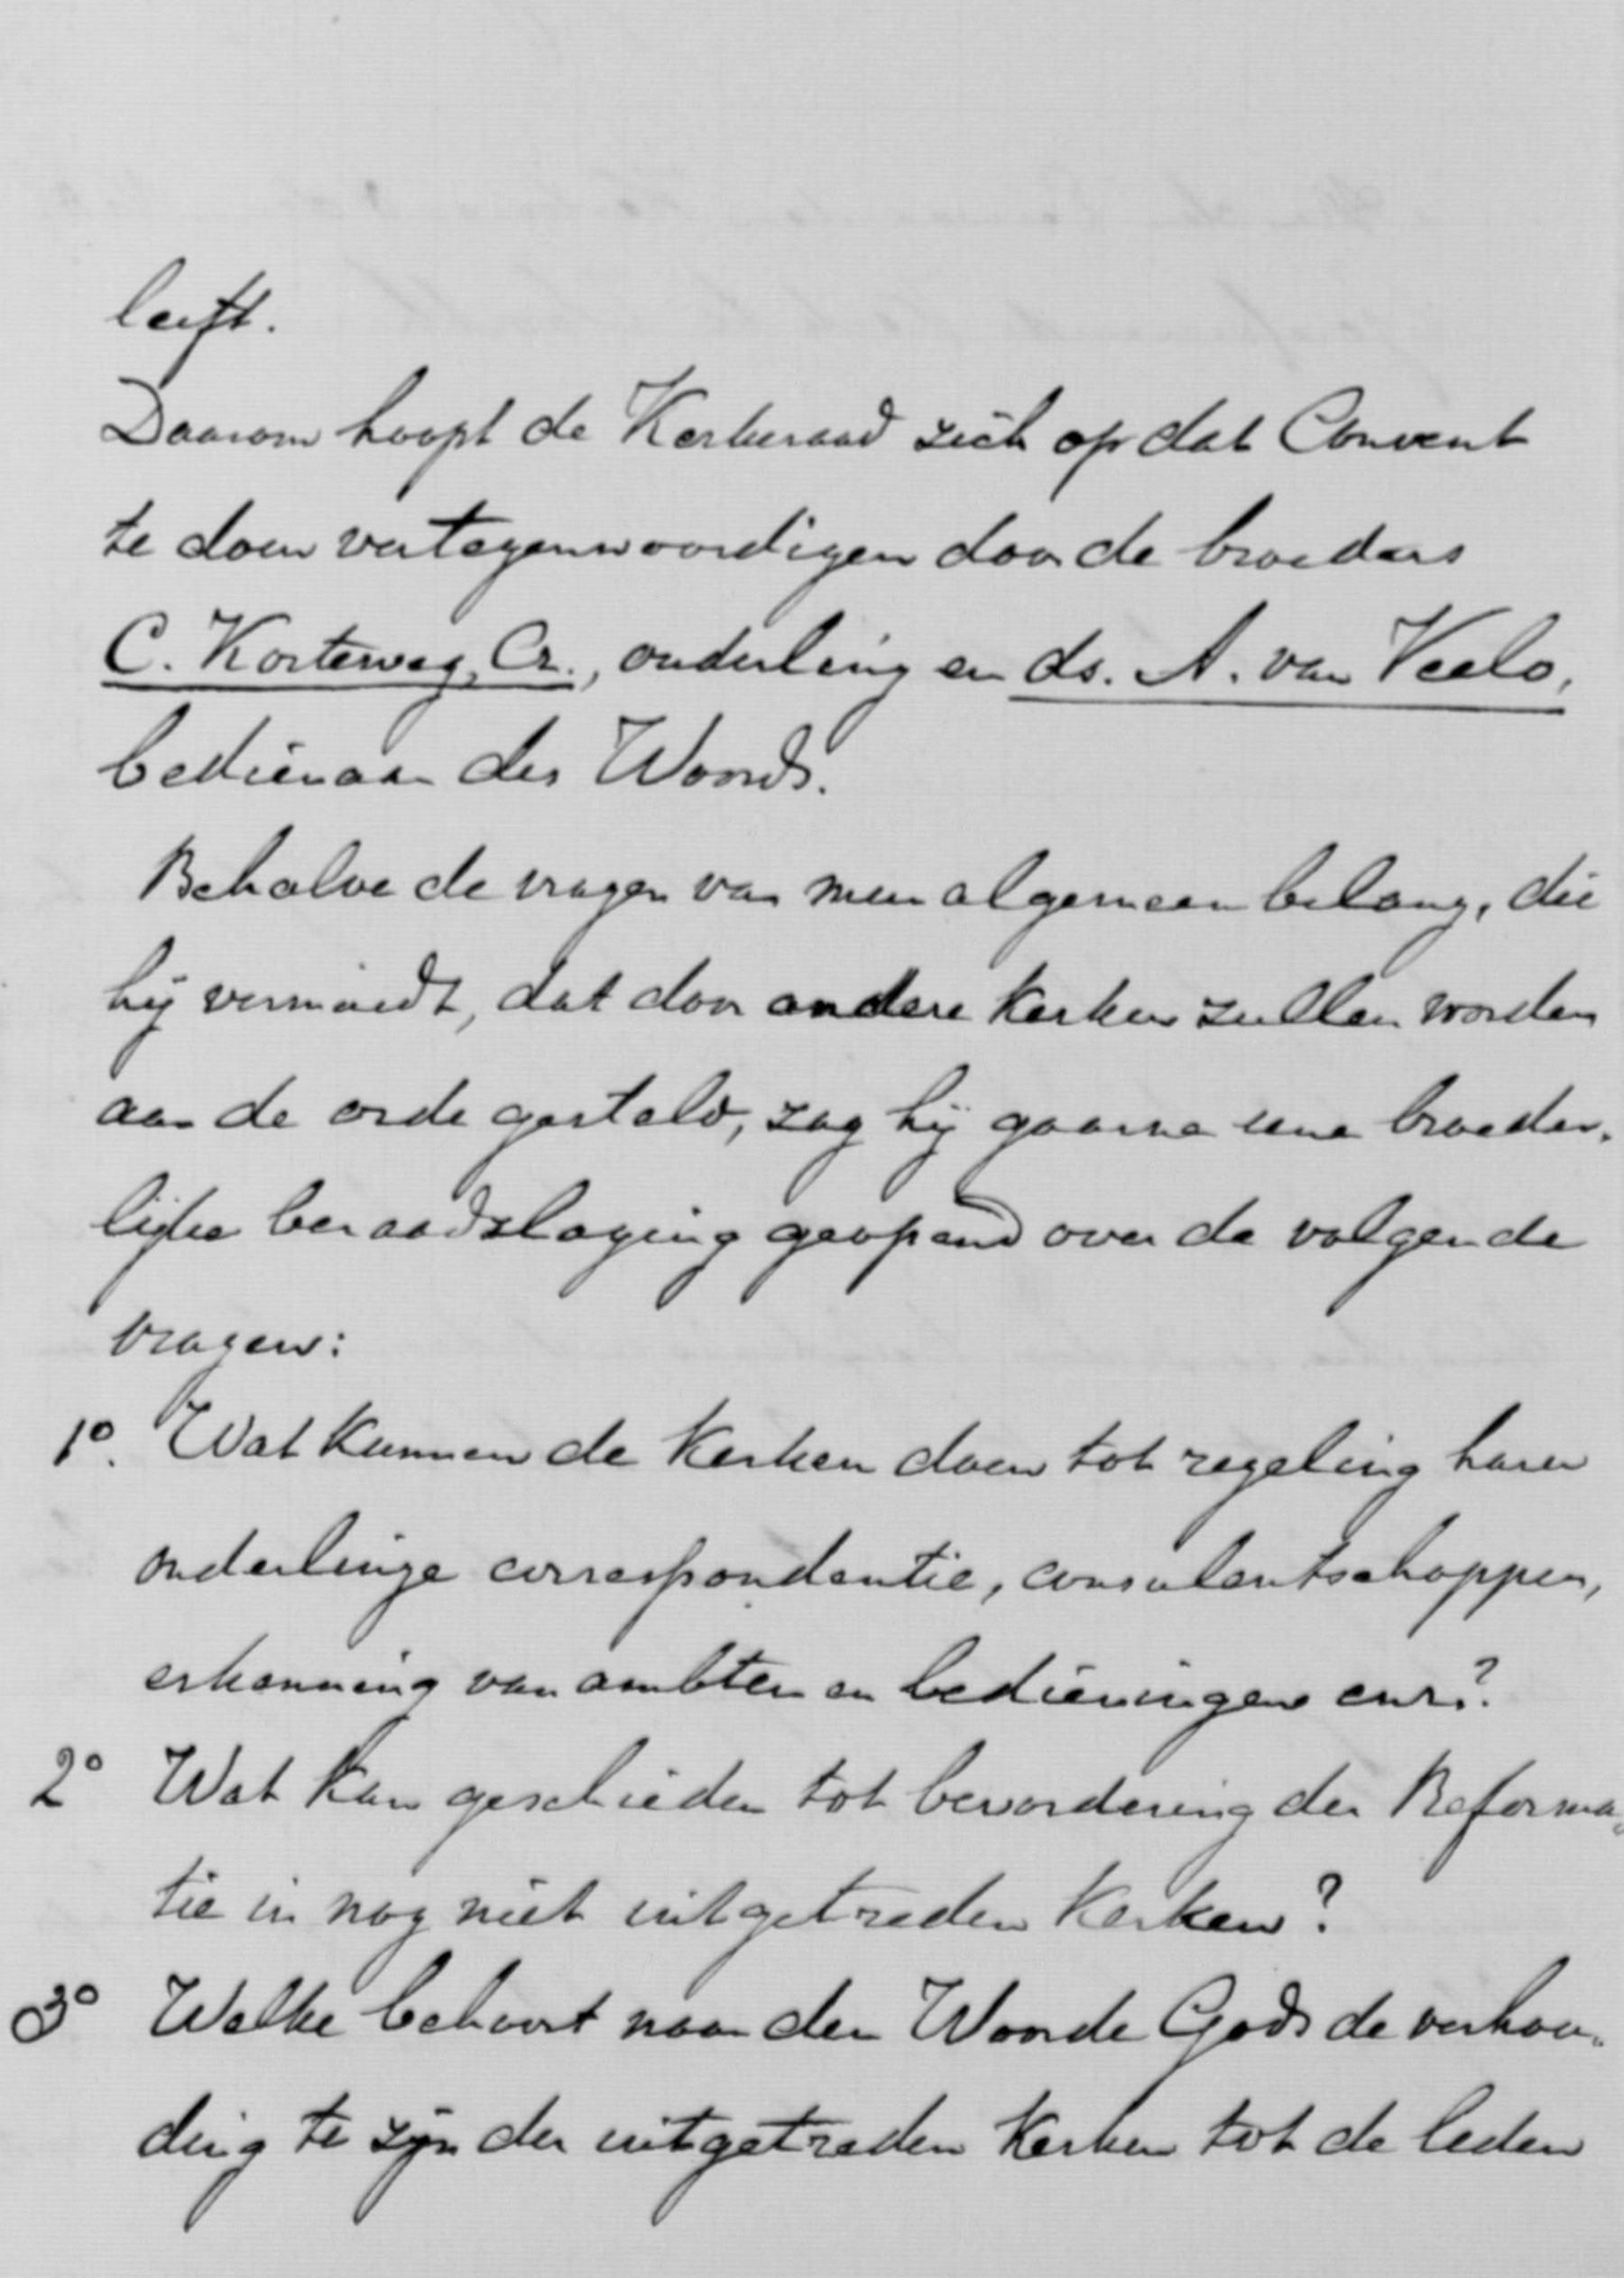 leeft.
Daarom hoopt de Kerkeraad zich op dat Convent
te doen vertegenwoordigen door de broeders
C. Korteweg, Cz., ouderling en ds. A. van Veelo,
bedienaar des Woords.
Behalve de vragen van meer algemeen belang, die
hij vermoedt, dat door andere Kerken zullen worden
aan de orde gesteld, zag hij gaarne eene broeder-
lijke beraadslaging geopend over de volgende
vragen:
1º. Wat kunnen de Kerken doen tot regeling harer
onderlinge correspondentie, consulentschappen,
erkenning van ambten en bedieningen enz.?
2º Wat kan geschieden tot bevordering der Reforma-
tie in nog niet uitgetreden Kerken?
3º Welke behoort naar den Woorde Gods de verhou-
ding te zijn der uitgetreden Kerken tot de leden